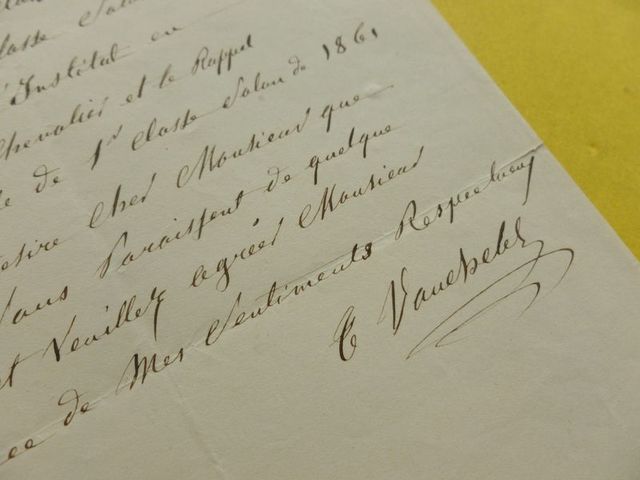 Classe Salon
Institut en
Chevalier et le Rappel
de 1r Classe Salon de 1861
desire Cher Monsieur que
Vous Paraissent de quelque
et Veuillez agréer Monsieur
de Mes Sentiments Respectueux
T Vauchelet